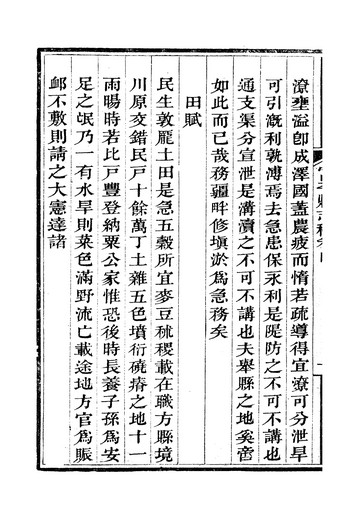 潦壅溢卽成澤國蓋農疲而惰若疏導得宜潦可分泄旱
可引漑利孰溥焉去急患保永利是隄防之不可不講也
通支渠分宣泄是溝瀆之不可不講也夫舉縣之地奚啻
如此而已哉務疆畔修塡淤爲急務矣
田賦
民生敦龎土田是急五糓所宜麥豆秫稷載在職方縣境
川原交錯民戸十餘萬丁土雜五色墳衍磽瘠之地十一
雨暘時若比戸豐登納粟公家惟恐後時長養子孫爲安
足之氓乃一有水旱則菜色滿野流亡載途地方官爲賑
卹不敷則請之大憲達諸